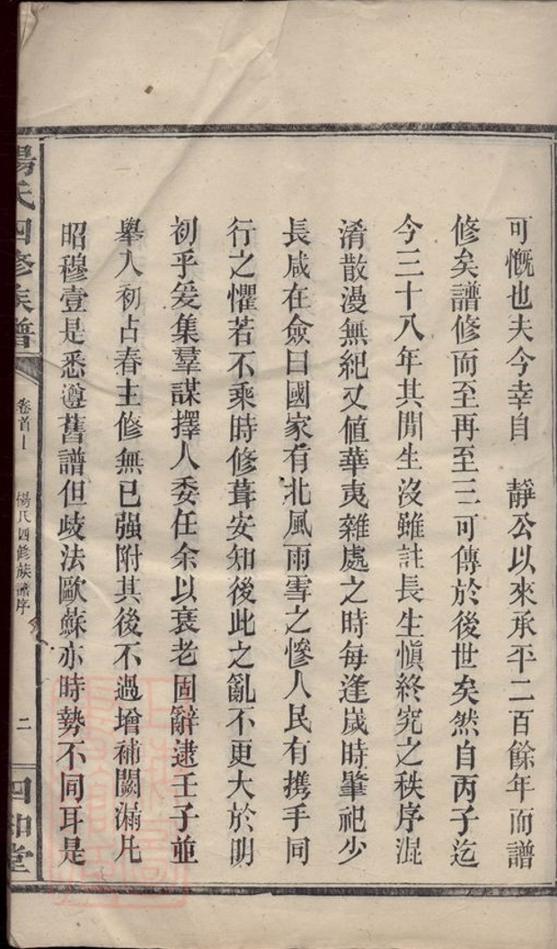 可慨也夫今幸自　靜公以來承平二百餘年而譜
修矣譜修而至再至三可傳於後世矣然自丙子迄
今三十八年其間生沒雖註長生慎終究之秩序混
淆散漫無紀又值華夷雜處之時每逢歲時肇祀少
長咸在僉曰國家有北風雨雪之慘人民有携手同
行之懼若不乘時修葺安知後此之亂不更大於明
初乎爰集羣謀擇人委任余以衰老固辭逮壬子並
舉人初占春主修無已强附其後不過增補闕漏凡
昭穆壹是悉遵舊譜但歧法歐蘇亦時勢不同耳是
楊氏四修族譜
卷首上
楊氏四修族譜序
二
四知堂